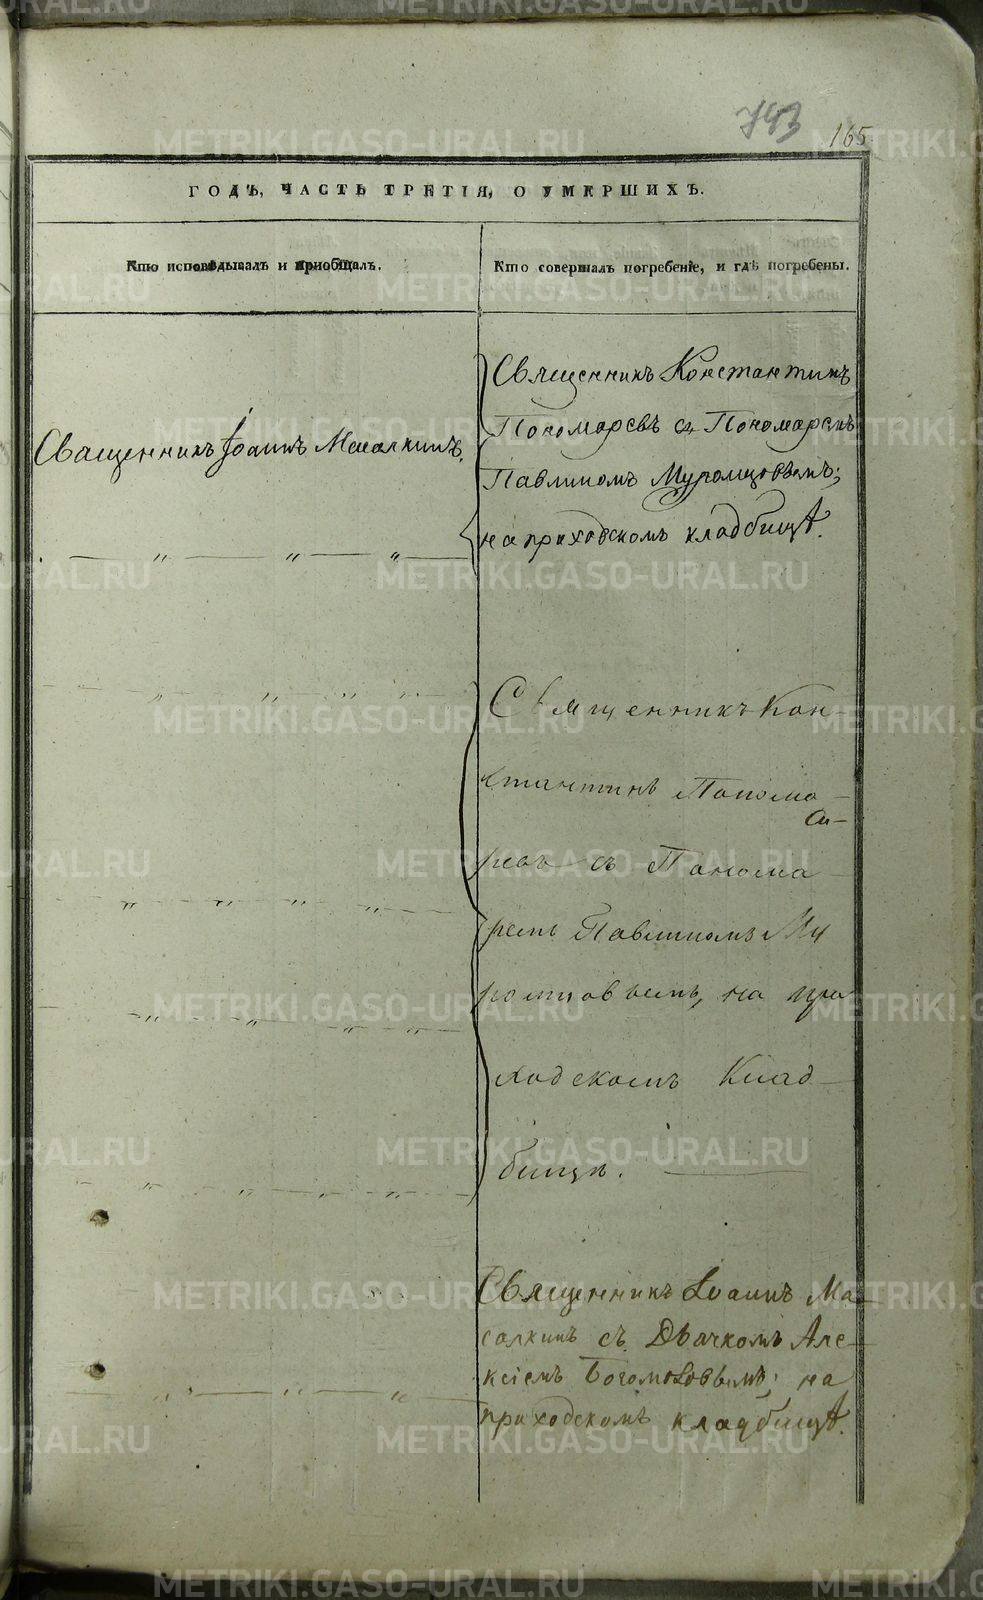 743
165
ГОДЪ, ЧАСТЬ ТРЕТІЯ, О УМЕРШИХЪ.
Кто исповѣдывалъ и приобщалъ.
Кто совершалъ погребеніе, и гдѣ погребены.
Священникъ Іоаннъ Масалкинъ.
— „ — „ — „ —
Священникъ Константинъ
Пономаревъ съ Пономаремъ
Павлиномъ Муромцовымъ;
на приходскомъ кладбищѣ.
Священникъ Кон-
стантинъ Понома-
ревъ съ Понома-
ремъ Павлиномъ Му
ромцовымъ, на при
ходскомъ Клад-
бищѣ.
Священникъ Іоаннъ Ма-
салкинъ съ Дьячкомъ Але-
ксіемъ Богомоловымъ; на
приходскомъ кладбищѣ.
METRIKI.GASO-URAL.RU